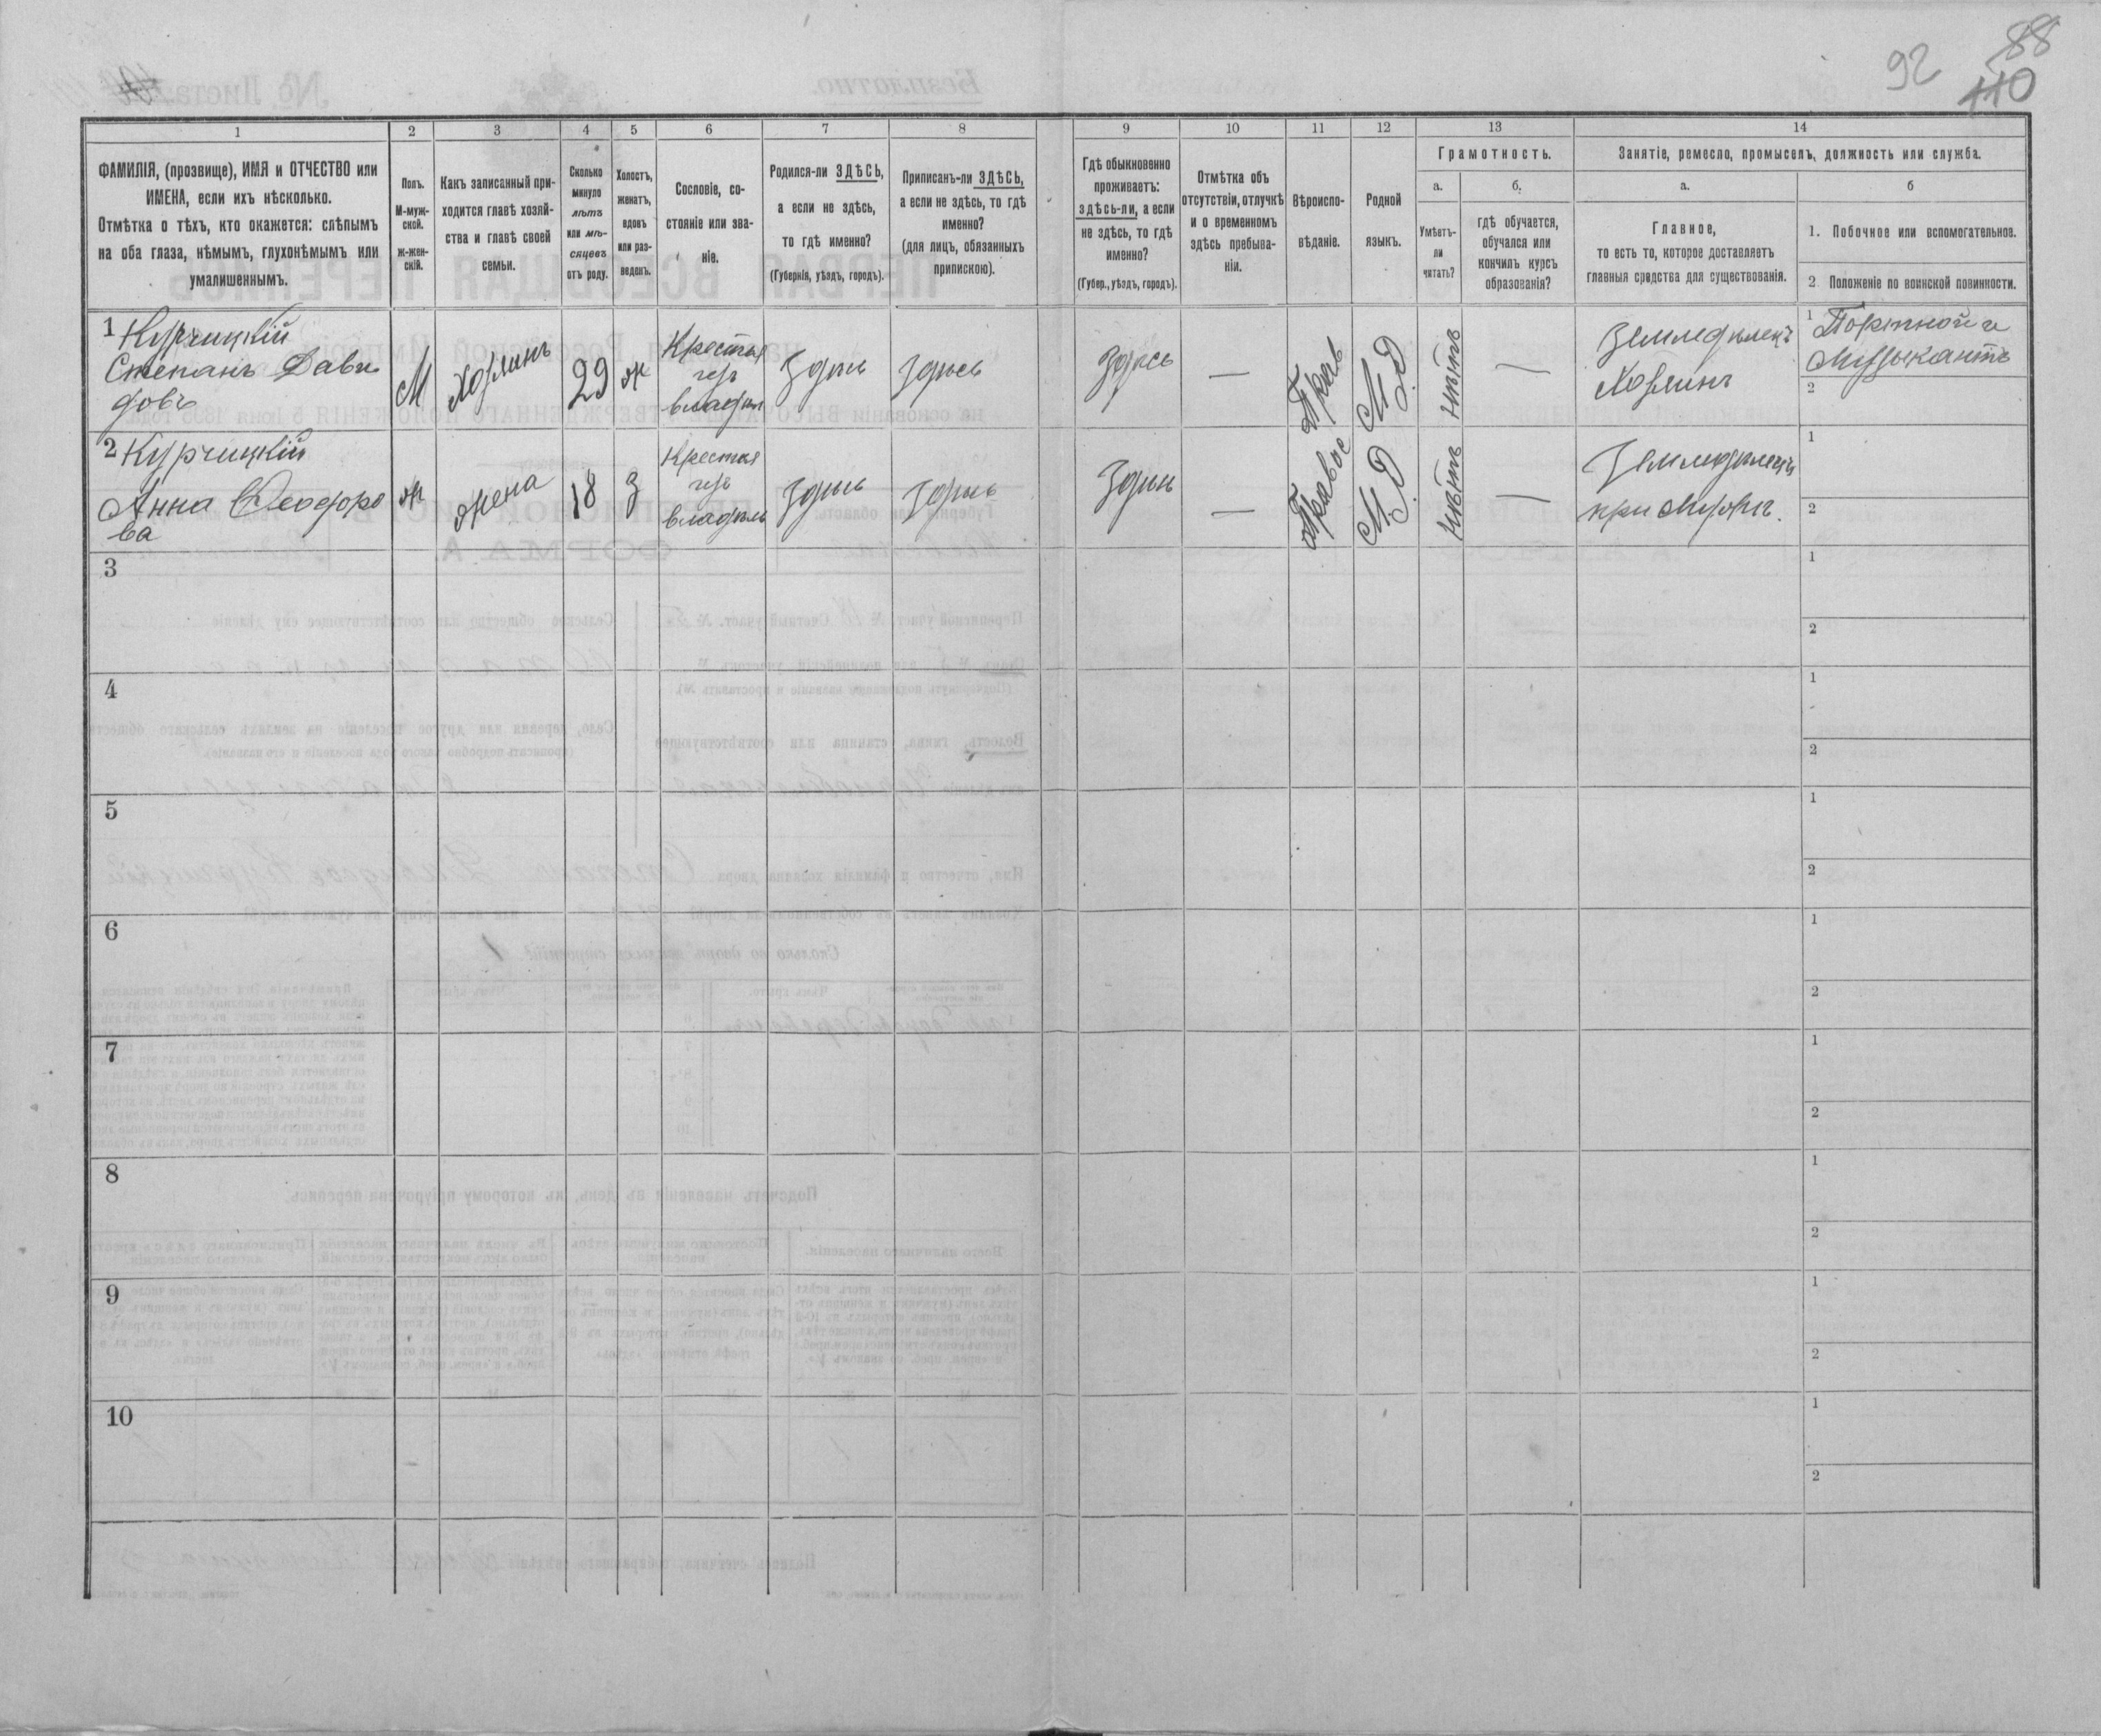 92
88
110
1
2
3
4
5
6
7
8
9
10
11
12
13
14
ФАМИЛІЯ, (прозвище), ИМЯ и ОТЧЕСТВО или
ИМЕНА, если ихъ нѣсколько.
Отмѣтка о тѣхъ, кто окажется: слѣпымъ
на оба глаза, нѣмымъ, глухонѣмымъ или
умалишеннымъ.
Полъ.
М-муж-
ской.
ж-жен-
скій.
Какъ записанный при-
ходится главѣ хозяй-
ства и главѣ своей
семьи.
Сколько
минуло
лѣтъ
или мѣ-
сяцевъ
отъ роду.
Холостъ,
женатъ,
вдовъ
или раз-
веденъ.
Сословіе, со-
стояніе или зва-
ніе.
Родился-ли ЗДѢСЬ,
а если не здѣсь,
то гдѣ именно?
(Губернія, уѣздъ, городъ).
Приписанъ-ли ЗДѢСЬ,
а если не здѣсь, то гдѣ
именно?
(для лицъ, обязанныхъ
припискою).
Гдѣ обыкновенно
проживаетъ:
здѣсь-ли, а если
не здѣсь, то гдѣ
именно?
(Губер., уѣздъ, городъ).
Отмѣтка объ
отсутствіи, отлучкѣ
и о временномъ
здѣсь пребыва-
ніи.
Вѣроиспо-
вѣданіе.
Родной
языкъ.
Грамотность.
а.
б.
Умѣетъ-
ли
читать?
гдѣ обучается,
обучался или
кончилъ курсъ
образованія?
Занятіе, ремесло, промыселъ, должность или служба.
а.
б
Главное,
то есть то, которое доставляетъ
главныя средства для существованія.
1. Побочное или вспомогательное.
2 Положеніе по воинской повинности.
1 Курчицкій
Степанъ Дави
довъ
М
Хозяинъ
29
ж
Крестья
нъ
владѣл
Здѣсь
Здѣсь
Здѣсь
—
Прав
М.Р
нѣтъ
—
Земледѣлецъ
Хозяинъ
1 Портной и
Музыкантъ
2
2 Курчицкій
Анна Феодоро
ва
ж
жена
18
З
Крестья
нъ
владѣль
Здѣсь
Здѣсь
Здѣсь
—
Правос
М.Р
нѣтъ
—
Земледѣлецъ
при мужѣ.
1
2
3
1
2
4
1
2
5
1
2
6
1
2
7
1
2
8
1
2
9
1
2
10
1
2